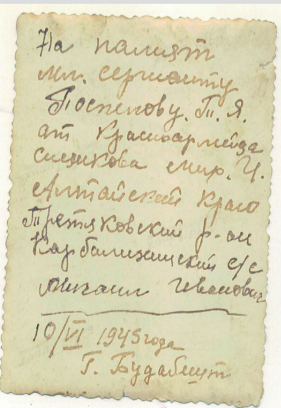 На памят
мл. сержанту
Поспелову. Т. Я.
от красноармейца
Алтайский краю
Третяковский р-он
Карболихинский с/с
Михаил Иванович
10/VI 1945 года
Г. Будабешт